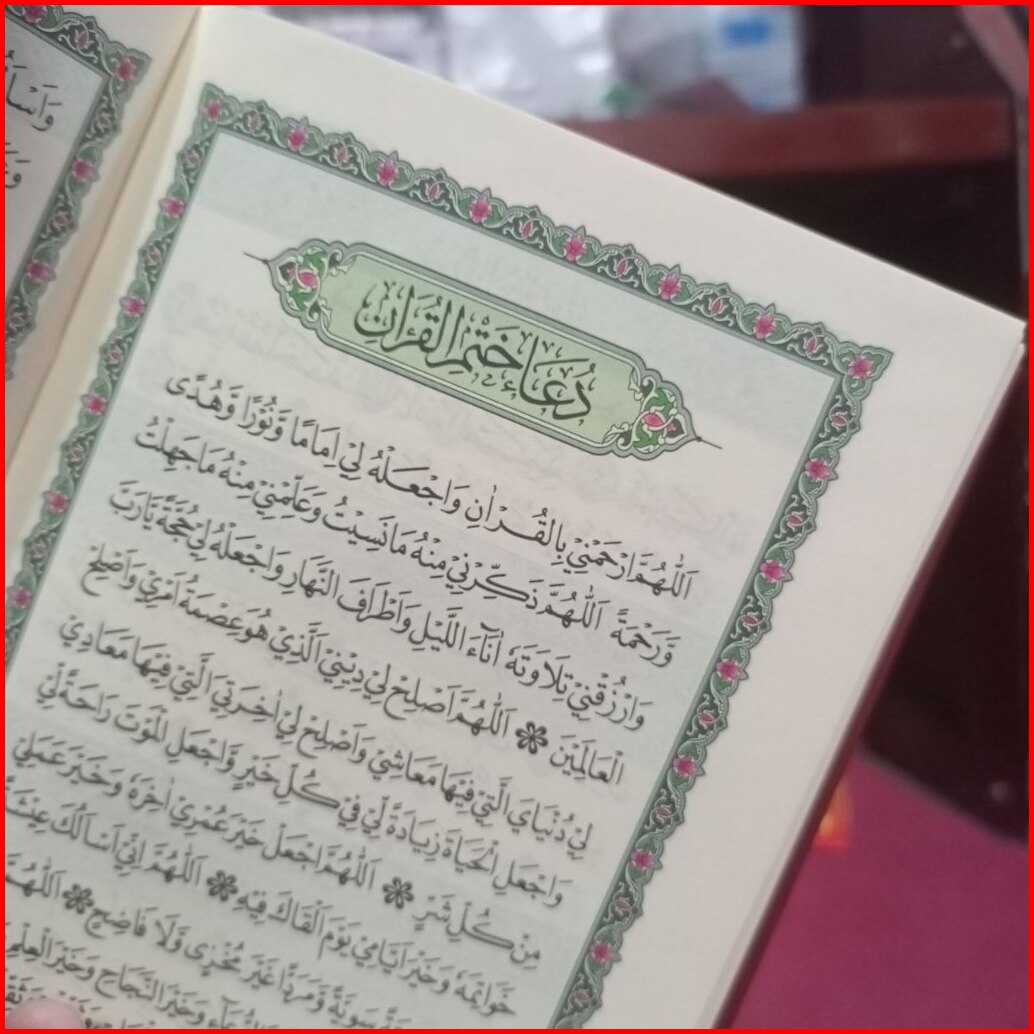 دُعَاءُ خَتْمِ الْقُرْاٰنِ
اَللّٰهُمَّ ارْحَمْنِيْ بِالْقُرْاٰنِ وَاجْعَلْهُ لِيْ اِمَامًا وَّنُوْرًا وَّهُدًى
وَّرَحْمَةً اَللّٰهُمَّ ذَكِّرْنِيْ مِنْهُ مَا نَسِيْتُ وَعَلِّمْنِيْ مِنْهُ مَا جَهِلْتُ
وَارْزُقْنِيْ تِلَاوَتَهٗ اٰنَآءَ اللَّيْلِ وَاَطْرَافَ النَّهَارِ وَاجْعَلْهُ لِيْ حُجَّةً يَّارَبَّ
الْعَالَمِيْنَ ❁ اَللّٰهُمَّ اَصْلِحْ لِيْ دِيْنِيَ الَّذِيْ هُوَ عِصْمَةُ اَمْرِيْ وَاَصْلِحْ
لِيْ دُنْيَايَ الَّتِيْ فِيْهَا مَعَاشِيْ وَاَصْلِحْ لِيْ اٰخِرَتِيَ الَّتِيْ فِيْهَا مَعَادِيْ
وَاجْعَلِ الْحَيَاةَ زِيَادَةً لِّيْ فِيْ كُلِّ خَيْرٍ وَّاجْعَلِ الْمَوْتَ رَاحَةً لِّيْ
مِنْ كُلِّ شَرٍّ ❁ اَللّٰهُمَّ اجْعَلْ خَيْرَ عُمْرِيْ اٰخِرَهٗ وَخَيْرَ عَمَلِيْ
خَوَاتِمَهٗ وَخَيْرَ اَيَّامِيْ يَوْمَ اَلْقَاكَ فِيْهِ ❁ اَللّٰهُمَّ اِنِّيْ اَسْاَلُكَ
سَوِيَّةً وَّمَرَدًّا غَيْرَ مُخْزٍى وَّلَا فَاضِحٍ ❁ اَللّٰهُمَّ
وَخَيْرَ النَّجَاحِ وَخَيْرَ الْعِلْمِ